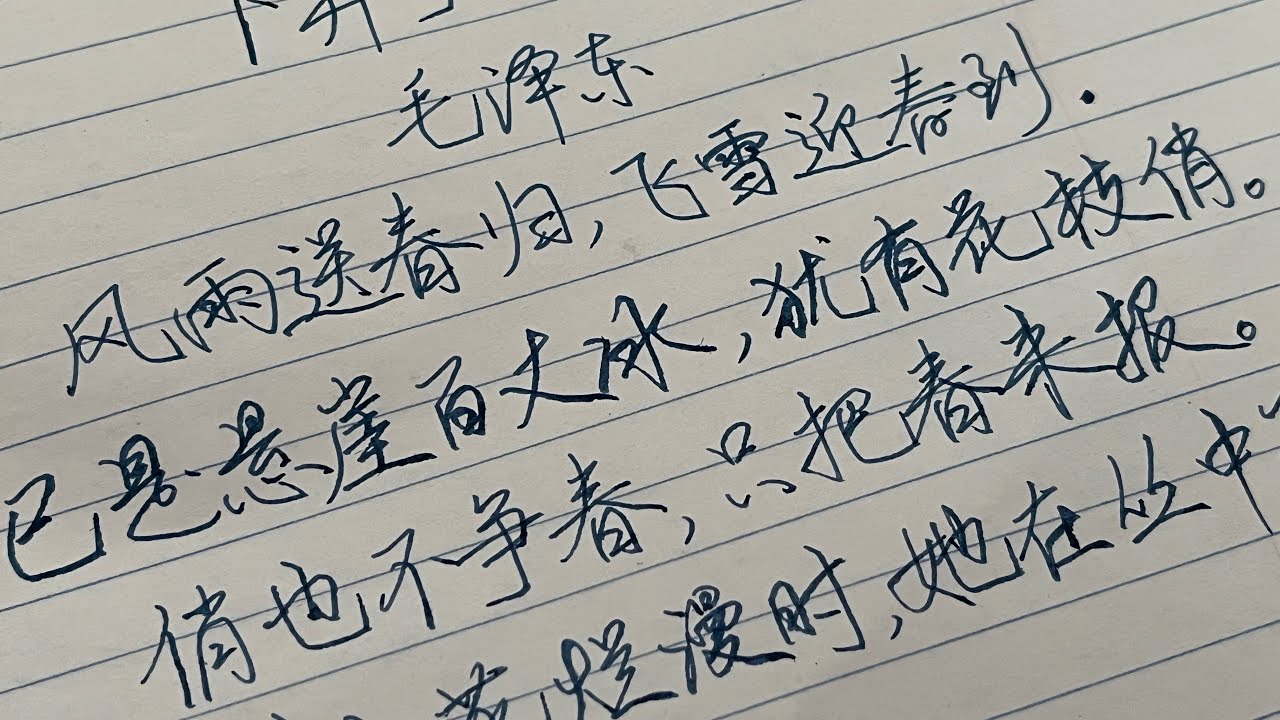 毛泽东
风雨送春归,飞雪迎春到.
已是悬崖百丈冰,犹有花枝俏。
俏也不争春,只把春来报。
花烂漫时,她在丛中